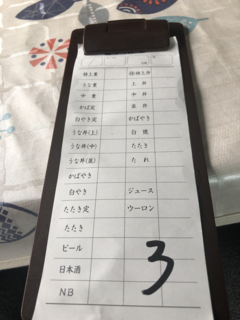 特上重 ㊕特上丼
うな重 上丼
中重 中丼
かば定 並丼
白やき定 かばやき
うな丼(上) 白焼
うな丼(中) たたき
うな丼(並) たれ
かばやき
白やき ジュース
たたき定 ウーロン
たたき
ビール
日本酒
NB
3